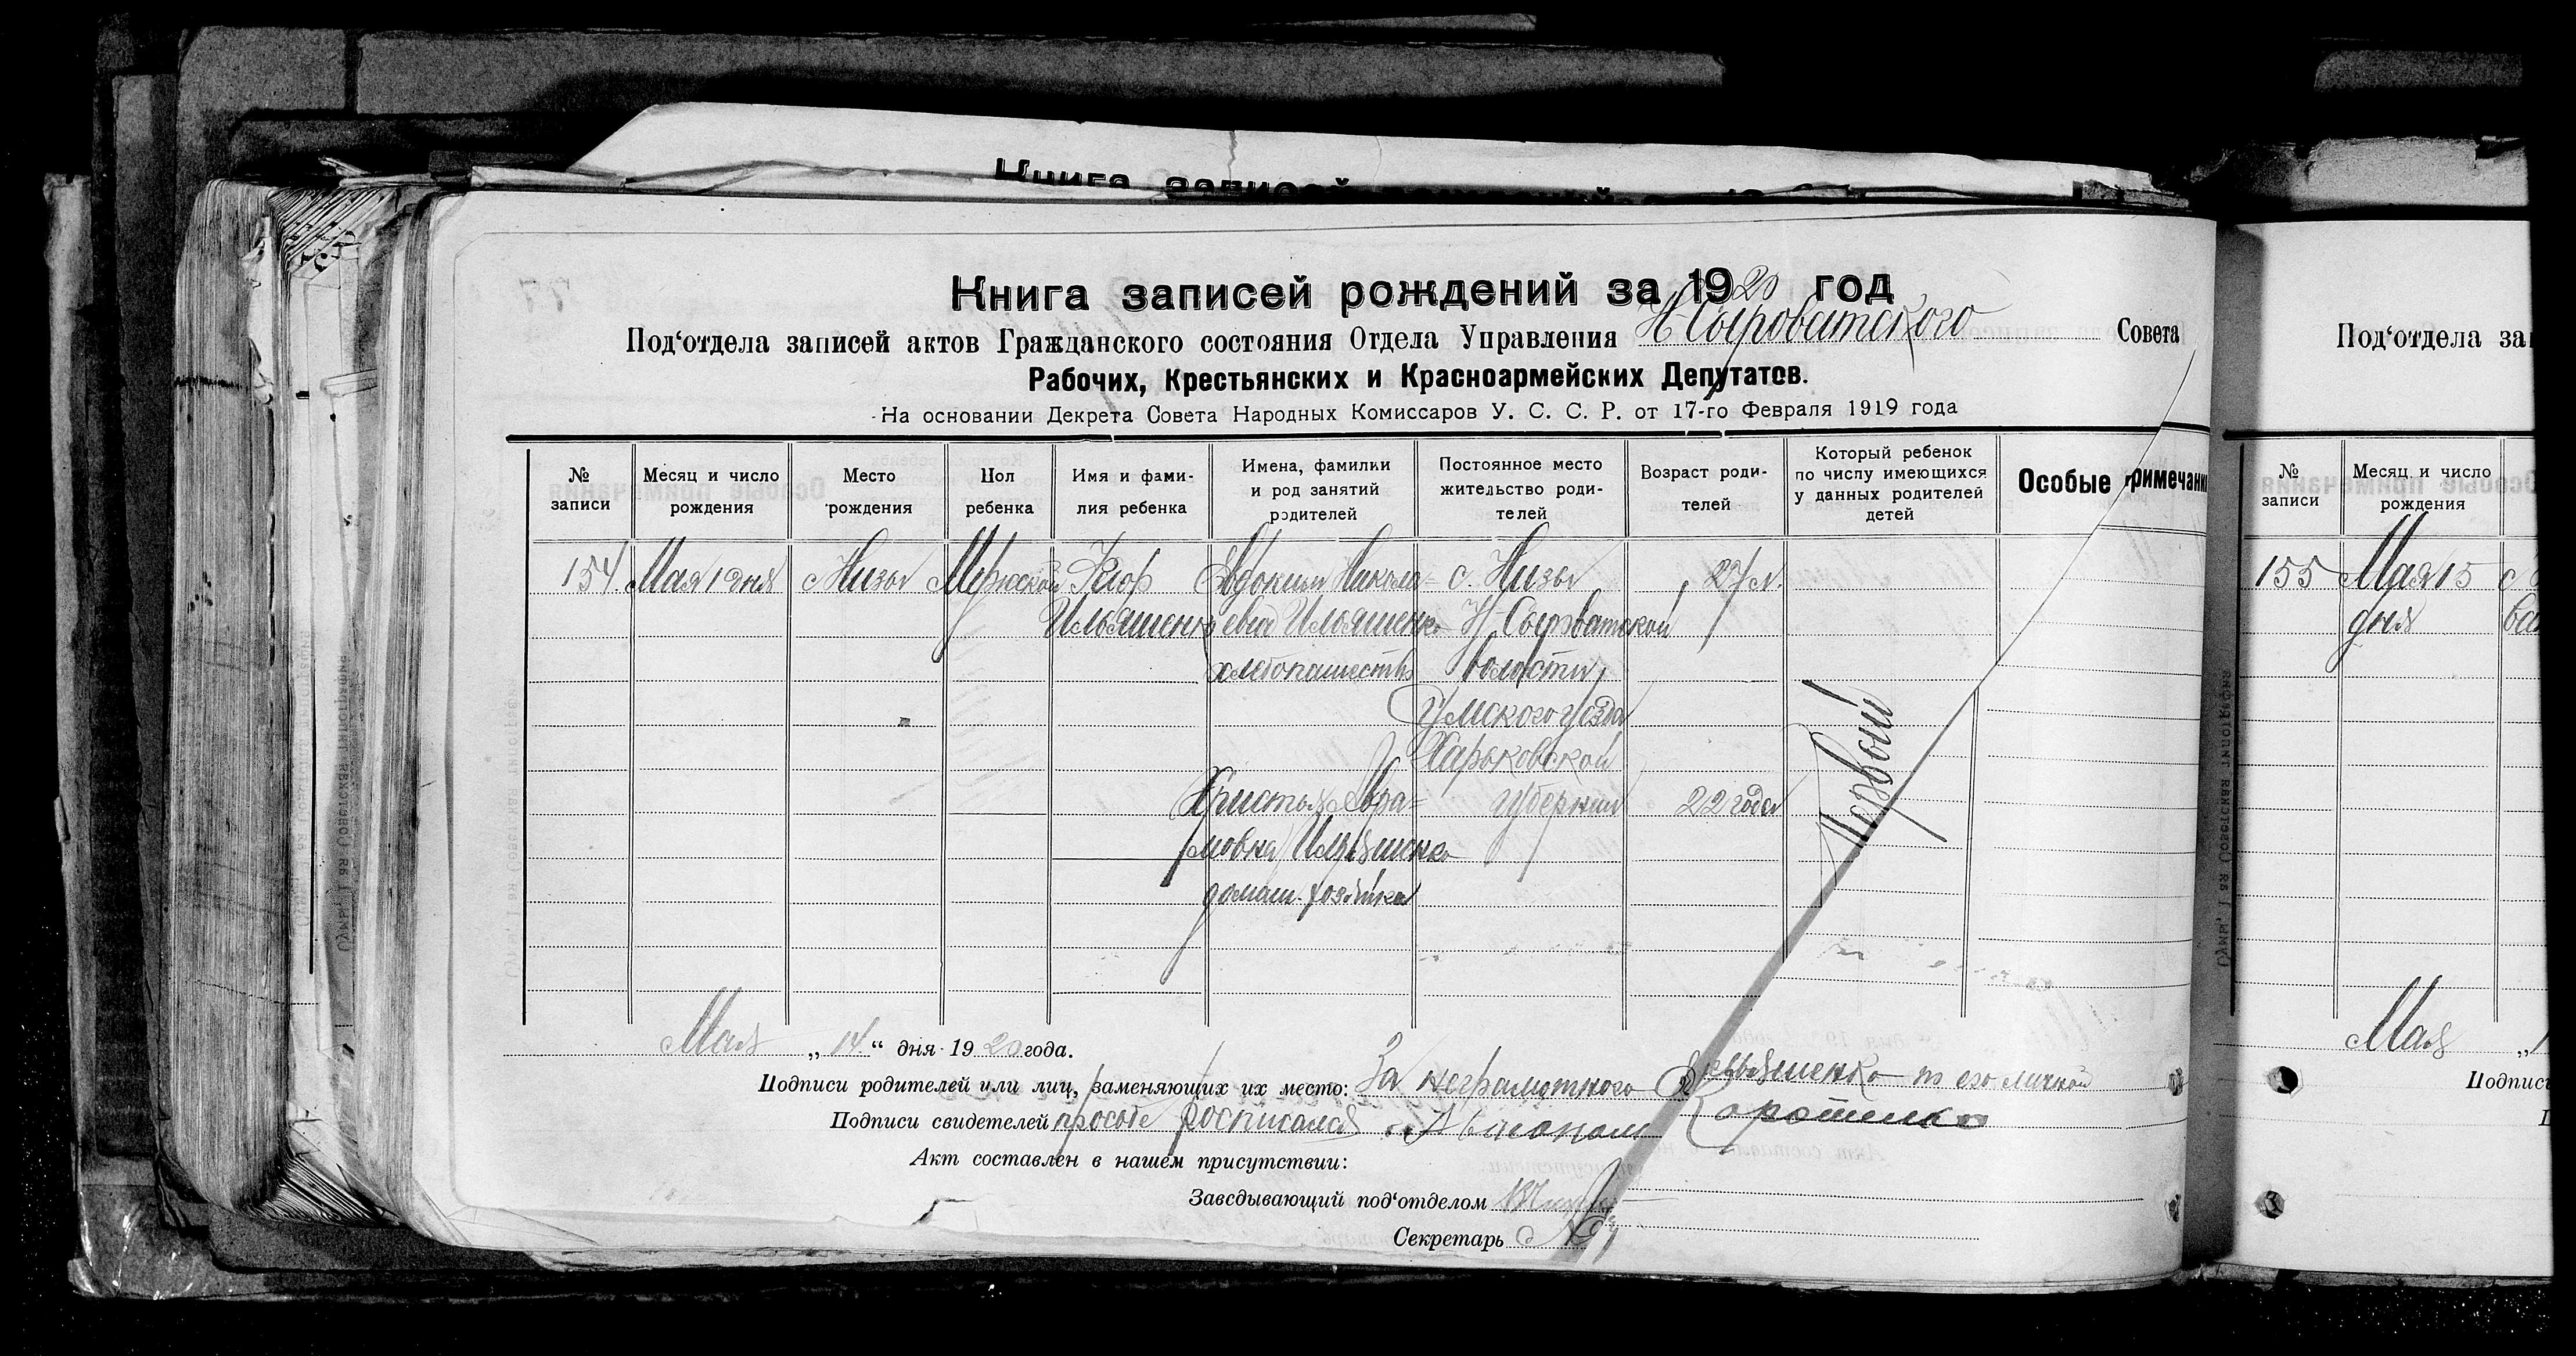 Книга записей рождений за 1920 год
Под‘отдела записей актов Гражданского состояния Отдела Управления Н Сыроватского Совета
Рабочих, Крестьянских и Красноармейских Депутатов.
На основании Декрета Совета Народных Комиссаров У. С. С. Р. от 17-го Февраля 1919 года
№ записи
Месяц и число рождения
Место рождения
Пол ребенка
Имя и фамилия ребенка
Имена, фамилии и род занятий родителей
Постоянное место жительство родителей
Возраст родителей
Который ребенок по числу имеющихся у данных родителей детей
Особые примечани
154.
Мая 1 дня
Низы
Мужской
Ильяшенко
Авдоким Никола=
евич Ильяшенко
хлебопашество
Христья Авра=
мовна Ильяшенко
домаш. хозяйка
с. Низы
Н-Сыроватской
волости,
Сумского уезда
Харьковской
губернии
27 л.
22 года
Первый
Мая „14.“ дня 1920 года.
Подписи родителей или лиц, заменяющих их место: За неграмотного Ильяшенко по его личной
Подписи свидетелей просьбе росписался
Акт составлен в нашем присутствии:
Заведывающий под‘отделом
Секретарь
Под‘отдела за
№ записи
Месяц и число рождения
155
Мая 15
дня
Мая